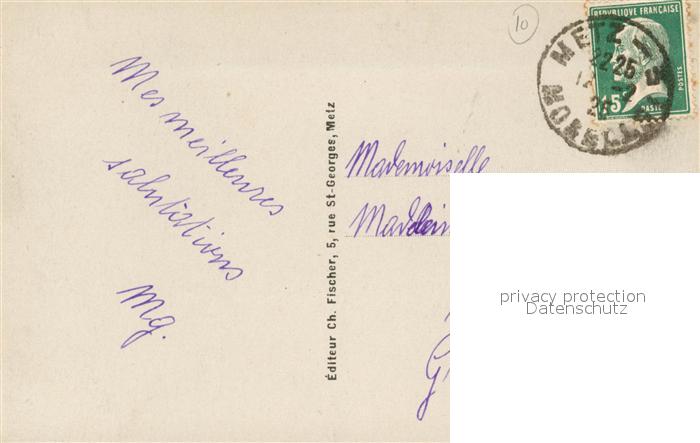 10
RÉPUBLIQUE FRANÇAISE
POSTES
15c
PASTEUR
METZ
22 25
MOSELLE
Mes meilleures
salutations
Mg.
Éditeur Ch. Fischer, 5, rue St-Georges, Metz
Mademoiselle
privacy protection
Datenschutz